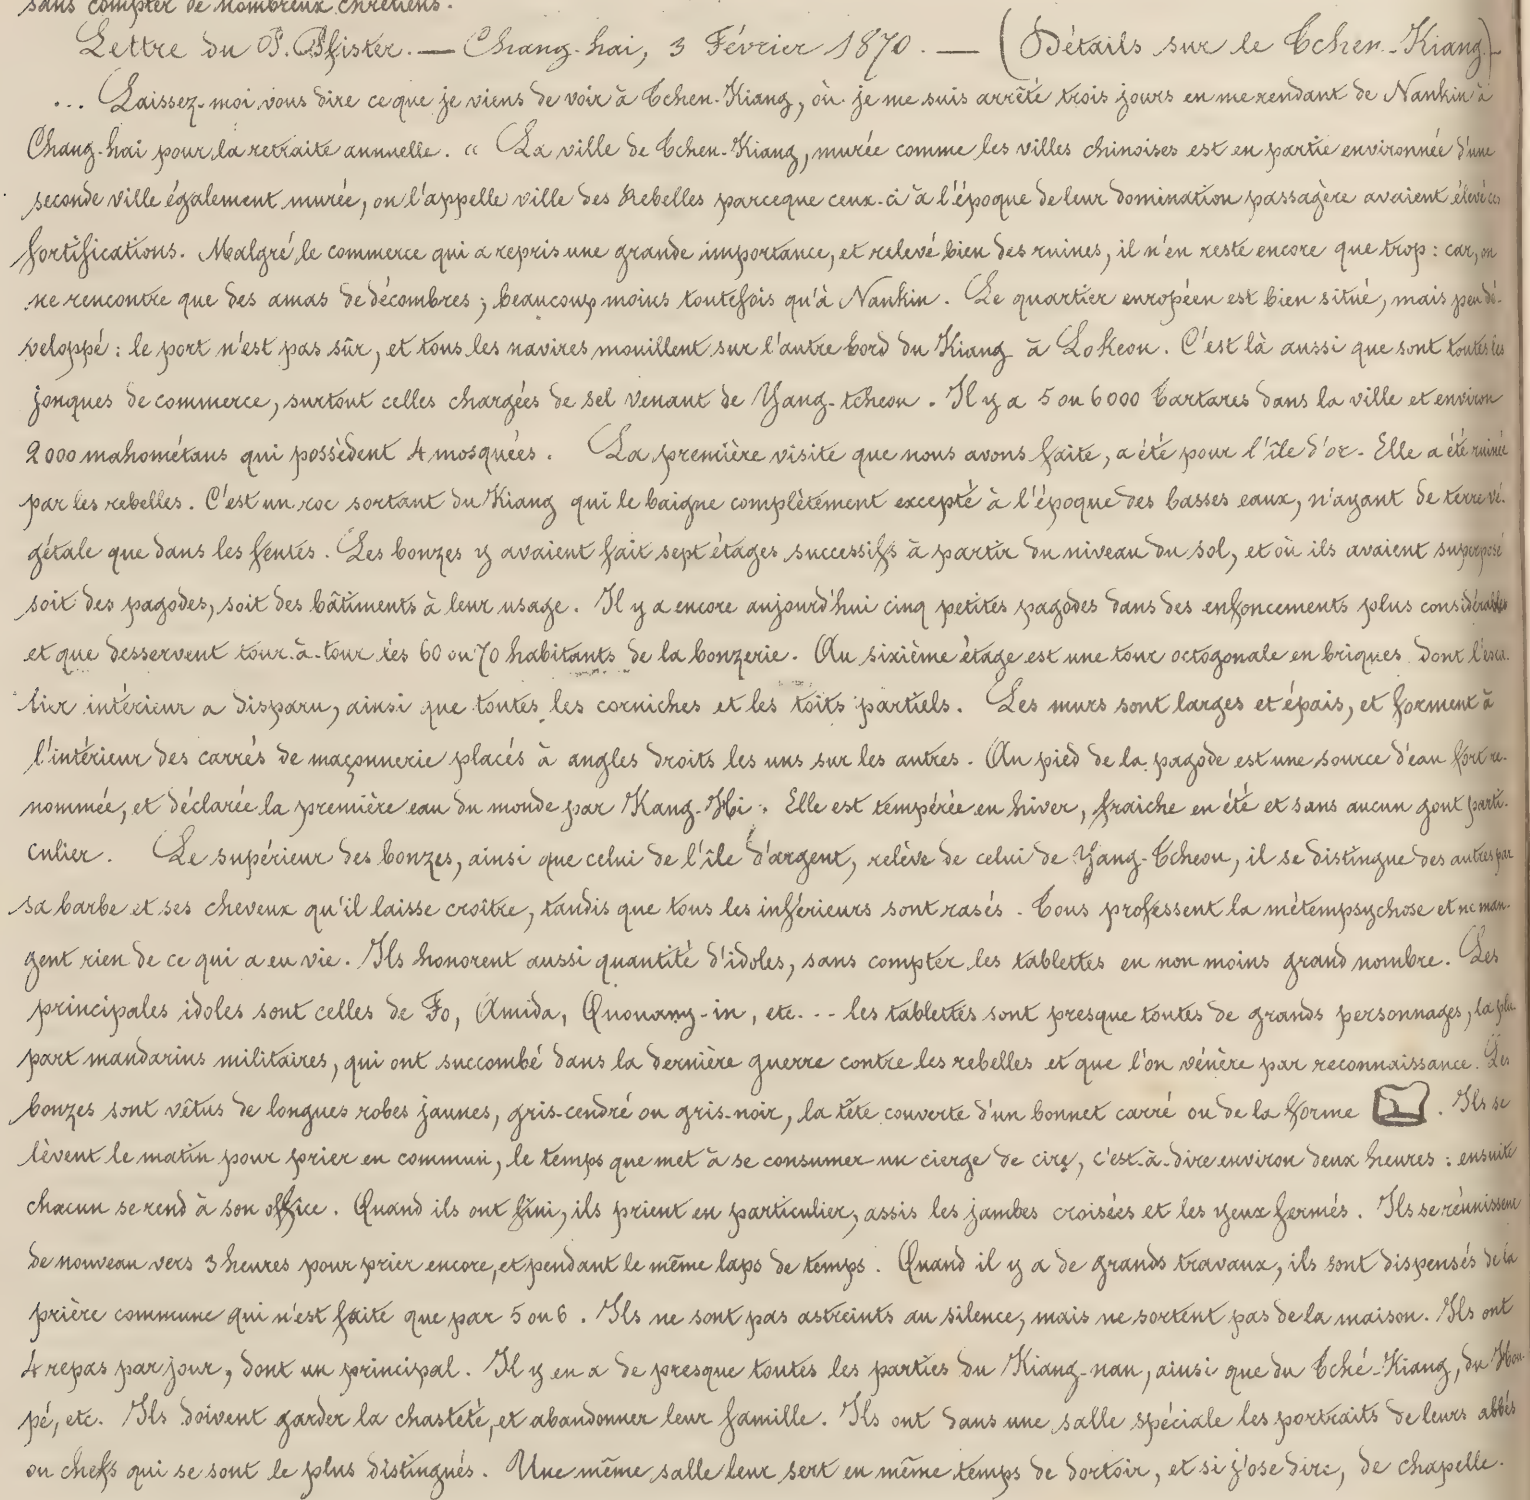 sans compter de nombreux chrétiens.
Lettre du P. Pfister. — Chang-hai, 3 Février 1870. — (Détails sur le Tchen-Kiang)
... Laissez-moi vous dire ce que je viens de voir à Tchen-Kiang, où je me suis arrêté trois jours en me rendant de Nankin à
Chang-hai pour la retraite annuelle. « La ville de Tchen-Kiang, murée comme les villes chinoises est en partie environnée d'une
seconde ville également murée, on l'appelle ville des Rebelles parceque ceux-ci à l'époque de leur domination passagère avaient élevé ces
fortifications. Malgré le commerce qui a repris une grande importance, et relevé bien des ruines, il n'en reste encore que trop : car, on
ne rencontre que des amas de décombres ; beaucoup moins toutefois qu'à Nankin. Le quartier européen est bien situé, mais peu dé-
veloppé : le port n'est pas sûr, et tous les navires mouillent sur l'autre bord du Kiang à Lokeou. C'est là aussi que sont toutes les
jonques de commerce, surtout celles chargées de sel venant de Yang-tcheou. Il y a 5 ou 6000 Tartares dans la ville et environ
2000 mahométans qui possèdent 4 mosquées. La première visite que nous avons faite, a été pour l'île d'or. Elle a été ruinée
par les rebelles. C'est un roc sortant du Kiang qui le baigne complètement excepté à l'époque des basses eaux, n'ayant de terre vé-
gétale que dans les fentes. Les bonzes y avaient fait sept étages successifs à partir du niveau du sol, et où ils avaient superposé
soit des pagodes, soit des bâtiments à leur usage. Il y a encore aujourd'hui cinq petites pagodes dans des enfoncements plus considérables
et que desservent tour-à-tour les 60 ou 70 habitants de la bonzerie. Au sixième étage est une tour octogonale en briques dont l'esca-
lier intérieur a disparu, ainsi que toutes les corniches et les toits partiels. Les murs sont larges et épais, et forment à
l'intérieur des carrés de maçonnerie placés à angles droits les uns sur les autres. Au pied de la pagode est une source d'eau fort re-
nommée, et déclarée la première eau du monde par Kang-Hi. Elle est tempérée en hiver, fraiche en été et sans aucun gout parti-
culier. Le supérieur des bonzes, ainsi que celui de l'île d'argent, relève de celui de Yang-Tcheou, il se distingue des autres par
sa barbe et ses cheveux qu'il laisse croître, tandis que tous les inférieurs sont rasés. Tous professent la métempsychose et ne man-
gent rien de ce qui a eu vie. Ils honorent aussi quantité d'idoles, sans compter les tablettes en non moins grand nombre. Les
principales idoles sont celles de Fo, Amida, Quouang-in, etc. - - les tablettes sont presque toutes de grands personnages, la plu-
part mandarins militaires, qui ont succombé dans la dernière guerre contre les rebelles et que l'on vénère par reconnaissance. Les
bonzes sont vêtus de longues robes jaunes, gris-cendré ou gris-noir, la tête couverte d'un bonnet carré ou de la forme . Ils se
lèvent le matin pour prier en commun, le temps que met à se consumer un cierge de cire, c'est-à-dire environ deux heures : ensuite
chacun se rend à son office. Quand ils ont fini, ils prient en particulier, assis les jambes croisées et les yeux fermés. Ils se réunissent
de nouveau vers 3 heures pour prier encore, et pendant le même laps de temps. Quand il y a de grands travaux, ils sont dispensés de la
prière commune qui n'est faite que par 5 ou 6. Ils ne sont pas astreints au silence, mais ne sortent pas de la maison. Ils ont
4 repas par jour, dont un principal. Il y en a de presque toutes les parties du Kiang-nan, ainsi que du Tché-Kiang, du Hou-
pé, etc. Ils doivent garder la chasteté, et abandonner leur famille. Ils ont dans une salle spéciale les portraits de leurs abbés
ou chefs qui se sont le plus distingués. Une même salle leur sert en même temps de dortoir, et si j'ose dire, de chapelle.